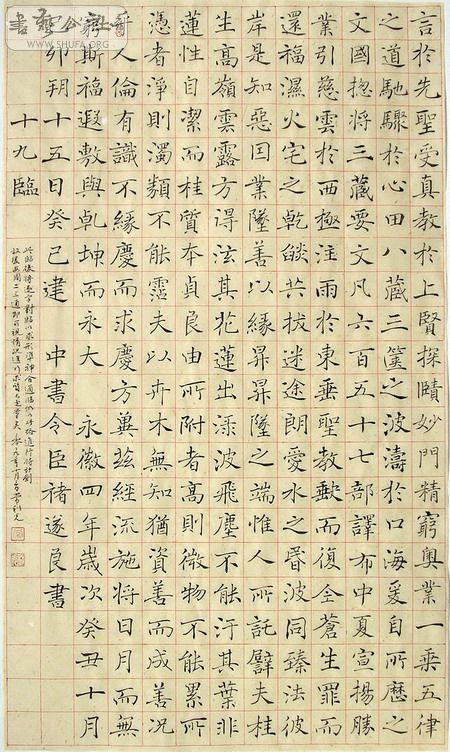 WWW.SHUFA.ORG
言於先聖受真教於上賢探賾妙門精窮奧業一乘五律
之道馳驟於心田八藏三篋之波濤於口海爰自所歷之
文國揔將三藏要文凡六百五十七部譯布中夏宣揚勝
業引慈雲於西極注雨於東垂聖教缺而復全蒼生罪而
還福濕火宅之乾燄共拔迷途朗愛水之昏波同臻法彼
岸是知惡因業墜善以緣昇昇墜之端惟人所託譬夫桂
生高嶺雲露方得泫其花蓮出淥波飛塵不能汙其葉非
蓮性自潔而桂質本貞良由所附者高則微物不能累所
憑者淨則濁類不能霑夫以卉木無知猶資善而成善況
乎人倫有識不緣慶而求慶方冀茲經流施將日月而無
窮斯福遐敷與乾坤而永大 永徽四年歲次癸丑十月
卯朔十五日癸巳建 中書令臣褚遂良書
十九臨